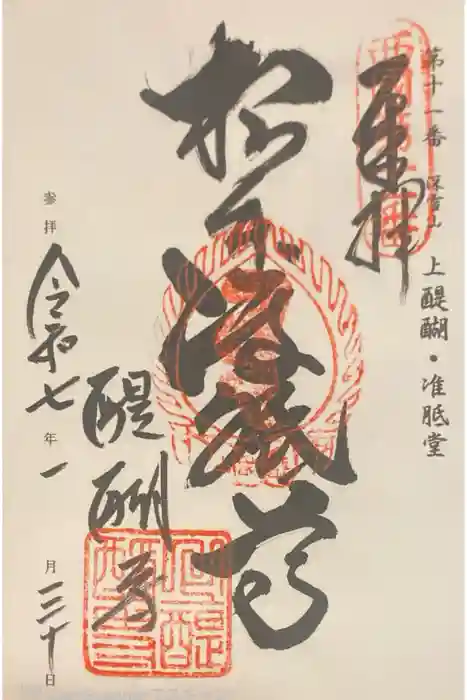 第十一番 深雪山 上醍醐・准胝堂
奉拝
根本准胝尊
醍醐寺
参拝 令和七年一月三十日